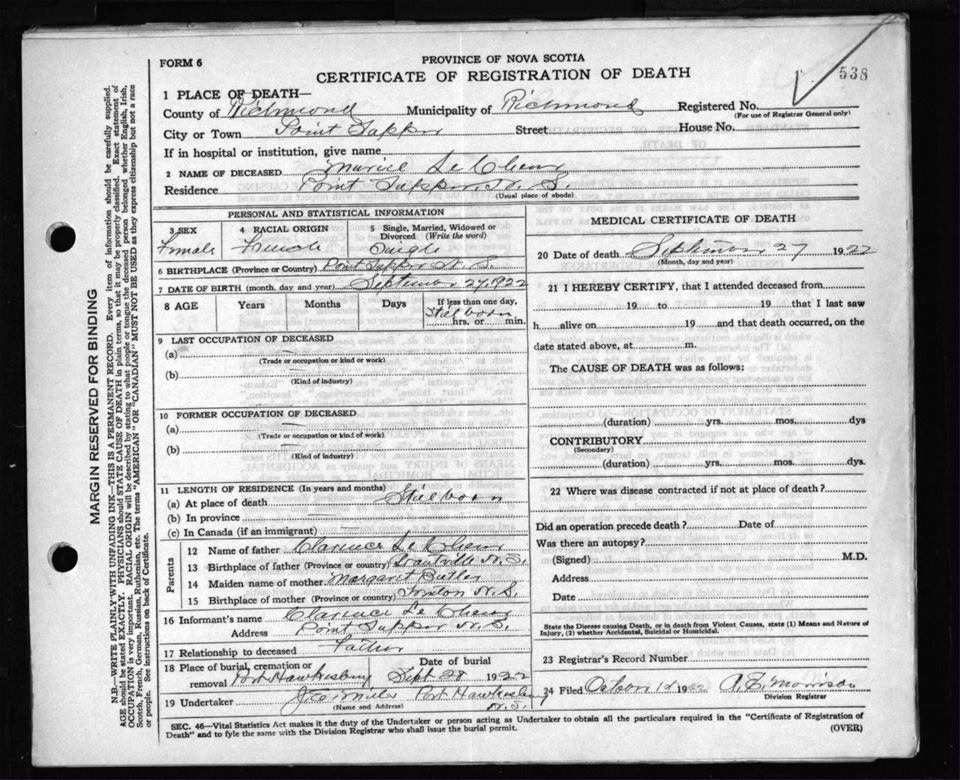 FORM 6
PROVINCE OF NOVA SCOTIA
CERTIFICATE OF REGISTRATION OF DEATH
538
1 PLACE OF DEATH—
County of Richmond Municipality of Richmond Registered No.
(For use of Registrar General only)
City or Town Point Tupper Street House No.
If in hospital or institution, give name
2 NAME OF DECEASED
Residence Point Tupper N. S.
(Usual place of abode)
PERSONAL AND STATISTICAL INFORMATION
3 SEX 4 RACIAL ORIGIN 5 Single, Married, Widowed or Divorced (Write the word)
Female Single
6 BIRTHPLACE (Province or Country) Point Tupper N. S.
7 DATE OF BIRTH (month, day and year) September 27, 1922
8 AGE Years Months Days If less than one day,
Still born
hrs. or min.
9 LAST OCCUPATION OF DECEASED
(a) —
(Trade or occupation or kind or work)
(b) —
(Kind of industry)
10 FORMER OCCUPATION OF DECEASED
(a) —
(Trade or occupation or kind or work)
(b) —
(Kind of industry)
11 LENGTH OF RESIDENCE (In years and months)
(a) At place of death Still born
(b) In province —
(c) In Canada (if an immigrant) —
Parents
12 Name of father Clarence
13 Birthplace of father (Province or country) N. S.
14 Maiden name of mother Margaret Butler
15 Birthplace of mother (Province or country) N. S.
16 Informant's name Clarence
Address Point Tupper N. S.
17 Relationship to deceased Father
18 Place of burial, cremation or removal Port Hawkesbury Date of burial Sept 28 1922
19 Undertaker Port Hawkesbury N. S.
(Name and Address)
MEDICAL CERTIFICATE OF DEATH
20 Date of death September 27 1922
(Month, day and year)
21 I HEREBY CERTIFY, that I attended deceased from
19 to 19 that I last saw
h alive on 19 and that death occurred, on the
date stated above, at m.
The CAUSE OF DEATH was as follows:
(duration) yrs. mos. dys
CONTRIBUTORY
(Secondary)
(duration) yrs. mos. dys.
22 Where was disease contracted if not at place of death?
Did an operation precede death? Date of
Was there an autopsy?
(Signed) M.D.
Address
Date
State the Disease causing Death, or in death from Violent Causes, state (1) Means and Nature of
Injury, (2) whether Accidental, Suicidal or Homicidal.
23 Registrar's Record Number
24 Filed 1922 Morrison
Division Registrar
SEC. 46—Vital Statistics Act makes it the duty of the Undertaker or person acting as Undertaker to obtain all the particulars required in the "Certificate of Registration of
Death" and to fyle the same with the Division Registrar who shall issue the burial permit. (OVER)
MARGIN RESERVED FOR BINDING
N.B.—WRITE PLAINLY WITH UNFADING INK—THIS IS A PERMANENT RECORD. Every item of information should be carefully supplied.
AGE should be stated EXACTLY. PHYSICIANS should STATE CAUSE OF DEATH in plain terms, so that it may be properly classified. Exact statement of
OCCUPATION is very important. RACIAL ORIGIN will be described by stating to what people or tongue the deceased person belonged, whether English, Irish,
Scotch, French, German, Russian, Ruthenian, etc. The terms "AMERICAN" OR "CANADIAN" MUST NOT BE USED as they express citizenship but not a race
or people. See instructions on back of Certificate.